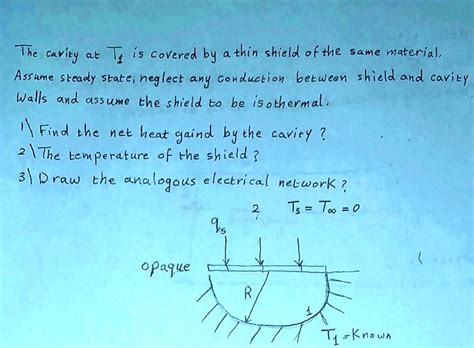 The cavity at T1 is covered by a thin shield of the same material.
Assume steady state, neglect any conduction between shield and cavity
Walls and assume the shield to be isothermal.
1\ Find the net heat gaind by the cavity ?
2\ The temperature of the shield ?
3\ Draw the analogous electrical network ?
2 Ts = T∞ = 0
qs
opaque
R
1
T1 = Known